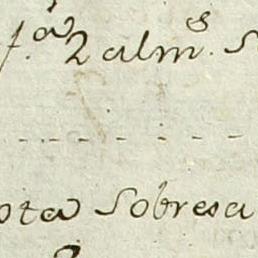 f.ª 2 alm.s S
ota Sobresa